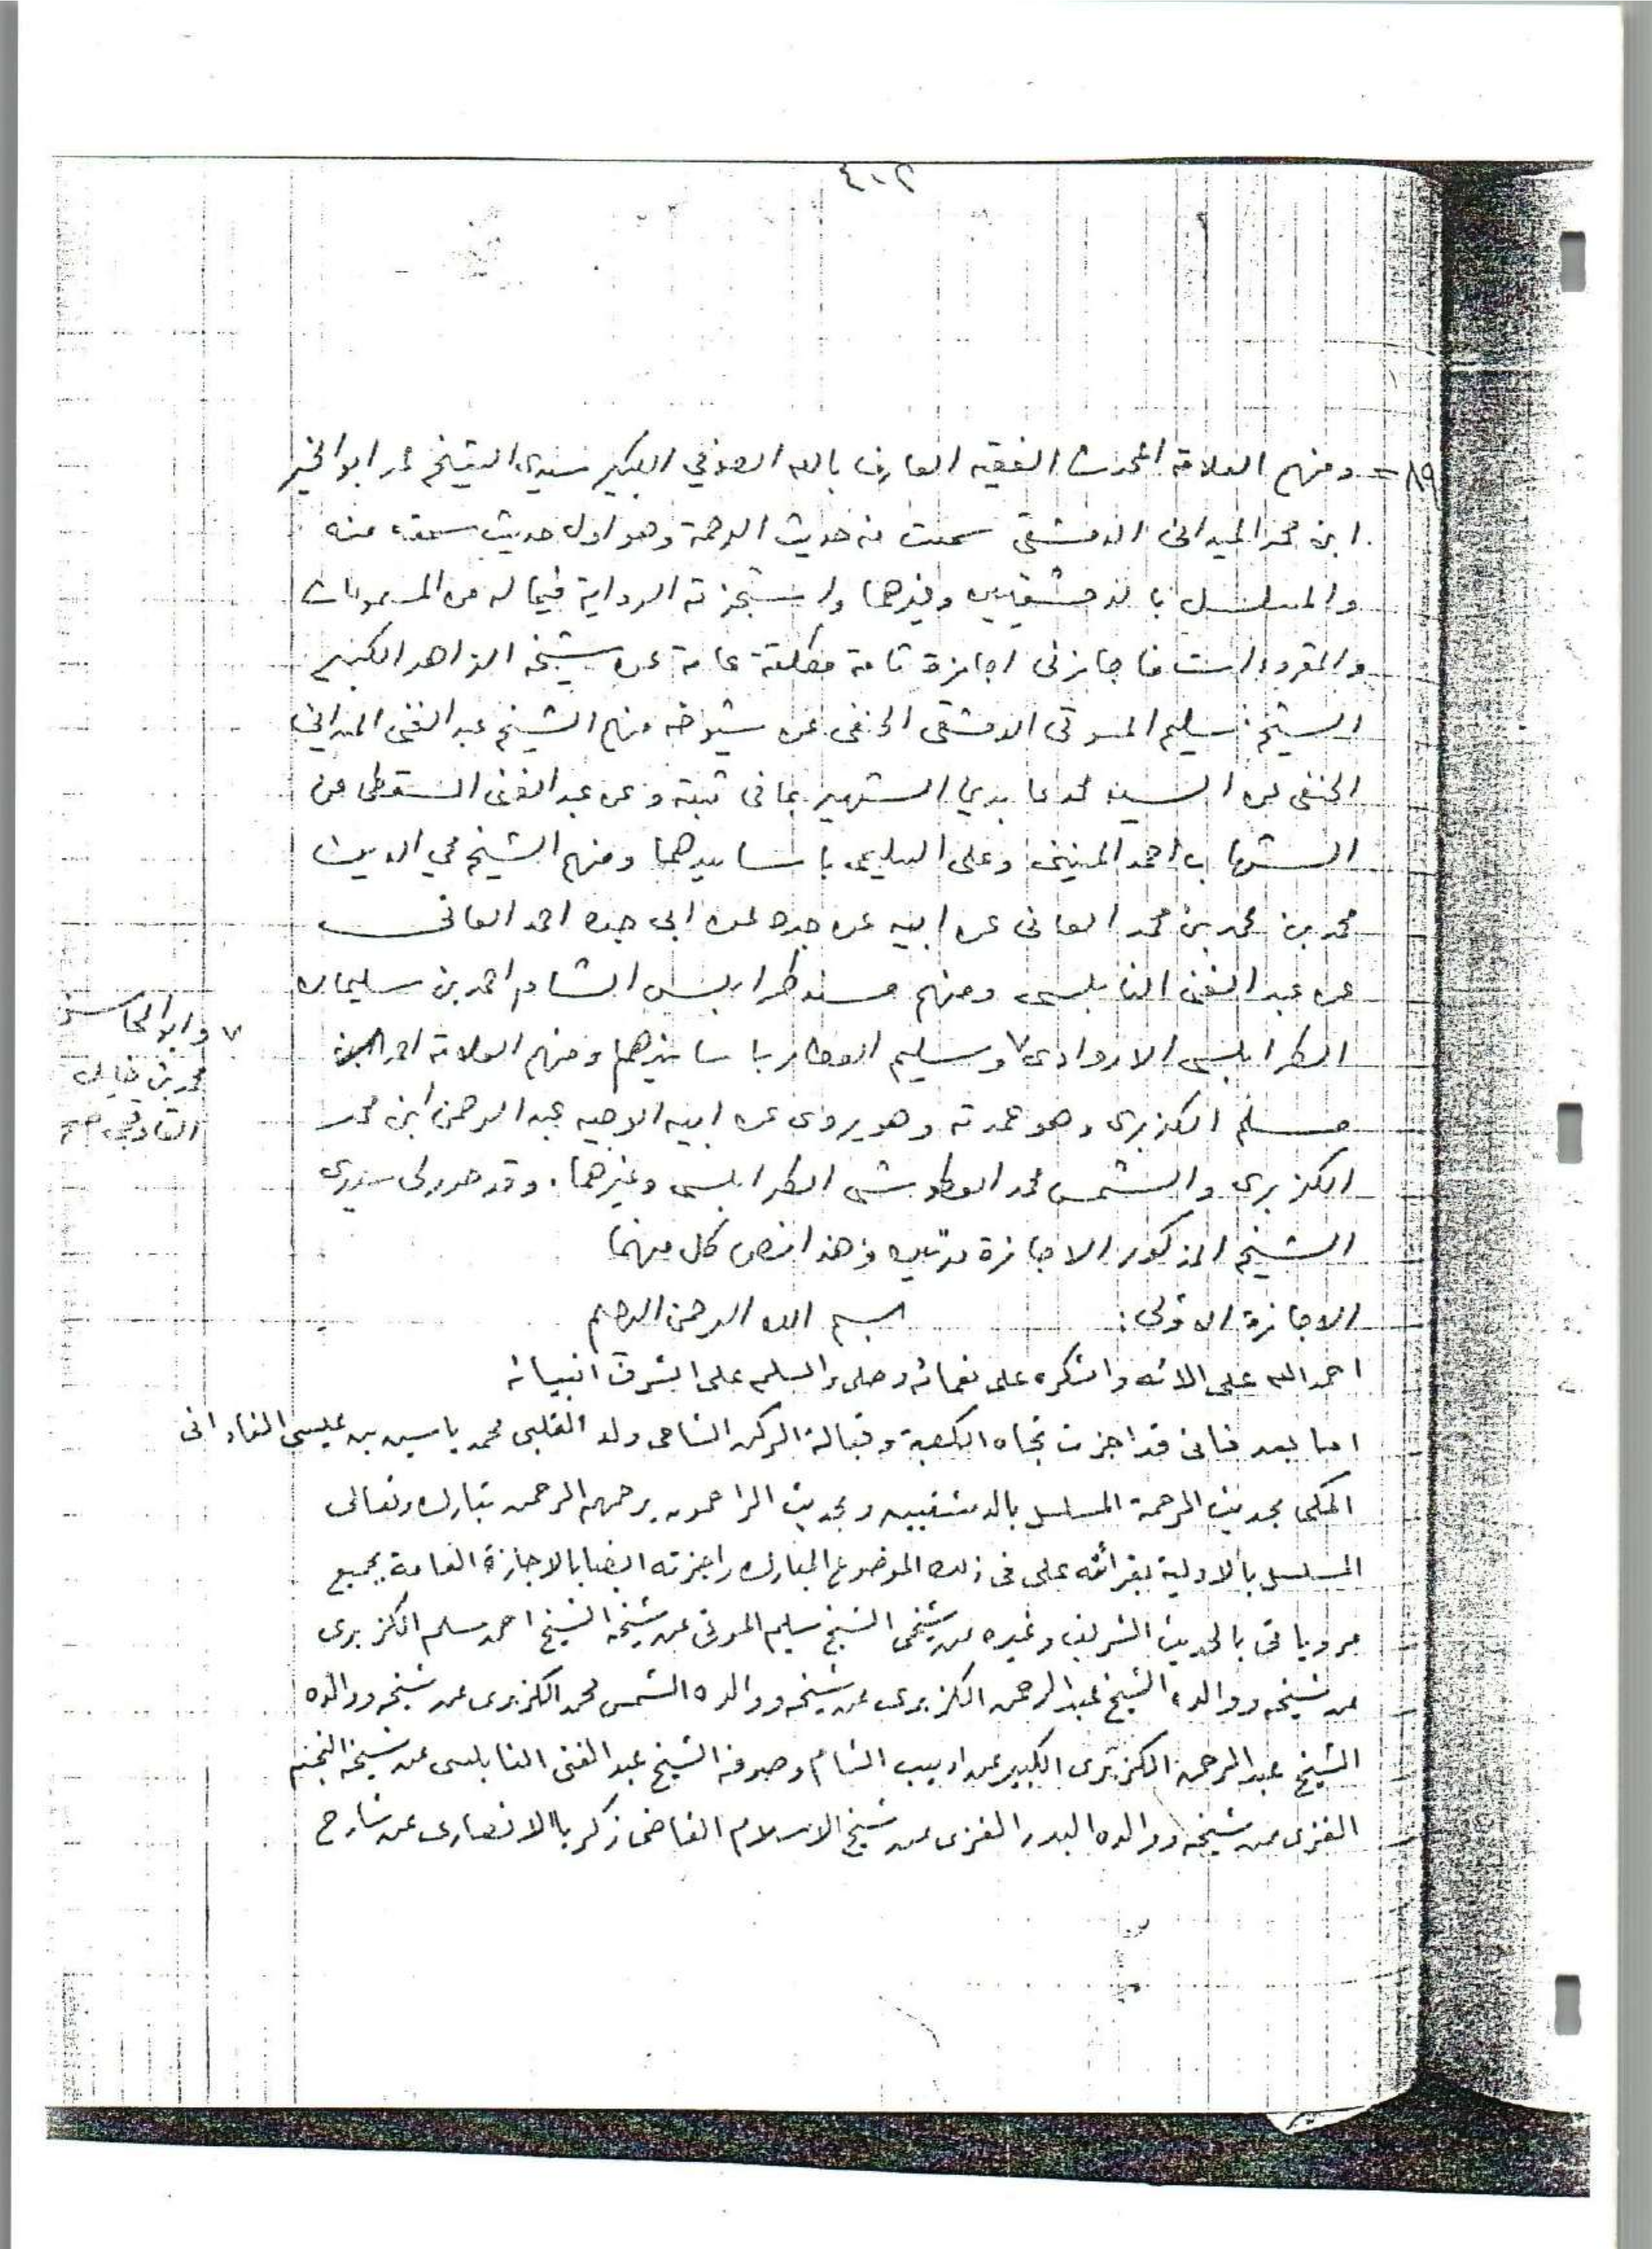 ٤٠٢
٨٩= ومنهم العلامة المحدث الفقيه العارف بالله الصوفي الكبير سيدي الشيخ محمد ابو الخير
ابن محمد الميداني الدمشقي سمعت منه حديث الرحمة وهو اول حديث سمعته منه
والمسلسل بالدمشقيين وغيرهما واستجزته الرواية فيما له من المسموعات
والمقروءات فاجازني اجازة تامة مطلقة عامة عن شيخه الزاهد الكبير
الشيخ سليم المسوتي الدمشقي الحنفي عن شيوخه منهم الشيخ عبد الغني الميداني
الحنفي عن السيد محمد عابدين الشهير بما في ثبته وعن عبد الغني السقطي عن
الشهاب احمد المنيني وعلي السليمي باسانيدهما ومنهم الشيخ محي الدين
محمد بن محمد بن محمد العاني عن ابيه عن جده عن ابي جده احمد العاني
عن عبد الغني النابلسي ومنهم مسند طرابلس الشام احمد بن سليمان
الطرابلسي الاروادي ٧ وسليم العطار باسانيدهم ومنهم العلامة احمد
٧ وابو المحاسن
محمد بن خليل
القاوقجي صح
مسلم الكزبري وهو عمدته وهو يروي عن ابيه الوجيه عبد الرحمن ابن محمد
الكزبري والشمس محمد الطرابلسي وغيرهما. وقد حرر لي سيدي
الشيخ المذكور الاجازة مرتين وهذا نص كل منهما
الاجازة الاولى: بسم الله الرحمن الرحيم
احمد الله على الائه واشكره على نعمائه وصلى واسلم على اشرف انبيائه
اما بعد فاني قد اجزت تجاه الكعبة وقبالة الركن الشامي ولد القلبي محمد ياسين بن عيسى الفاداني
المكي بحديث الرحمة المسلسل بالدمشقيين وبحديث الراحمون يرحمهم الرحمن تبارك وتعالى
المسلسل بالاولية بقرائته علي في ذلك الموضوع المبارك واجزته ايضا بالاجازة العامة بجميع
مروياتي بالحديث الشريف وغيره عن شيخي الشيخ سليم المسوتي عن شيخه الشيخ احمد مسلم الكزبري
عن شيخه ووالده الشيخ عبد الرحمن الكزبري عن شيخه ووالده الشمس محمد الكزبري عن شيخه ووالده
الشيخ عبد الرحمن الكزبري الكبير عن اديب الشام وصوفيه الشيخ عبد الغني النابلسي عن شيخه النجم
الغزي عن شيخه ووالده البدر الغزي عن شيخ الاسلام القاضي زكريا الانصاري عن شارح